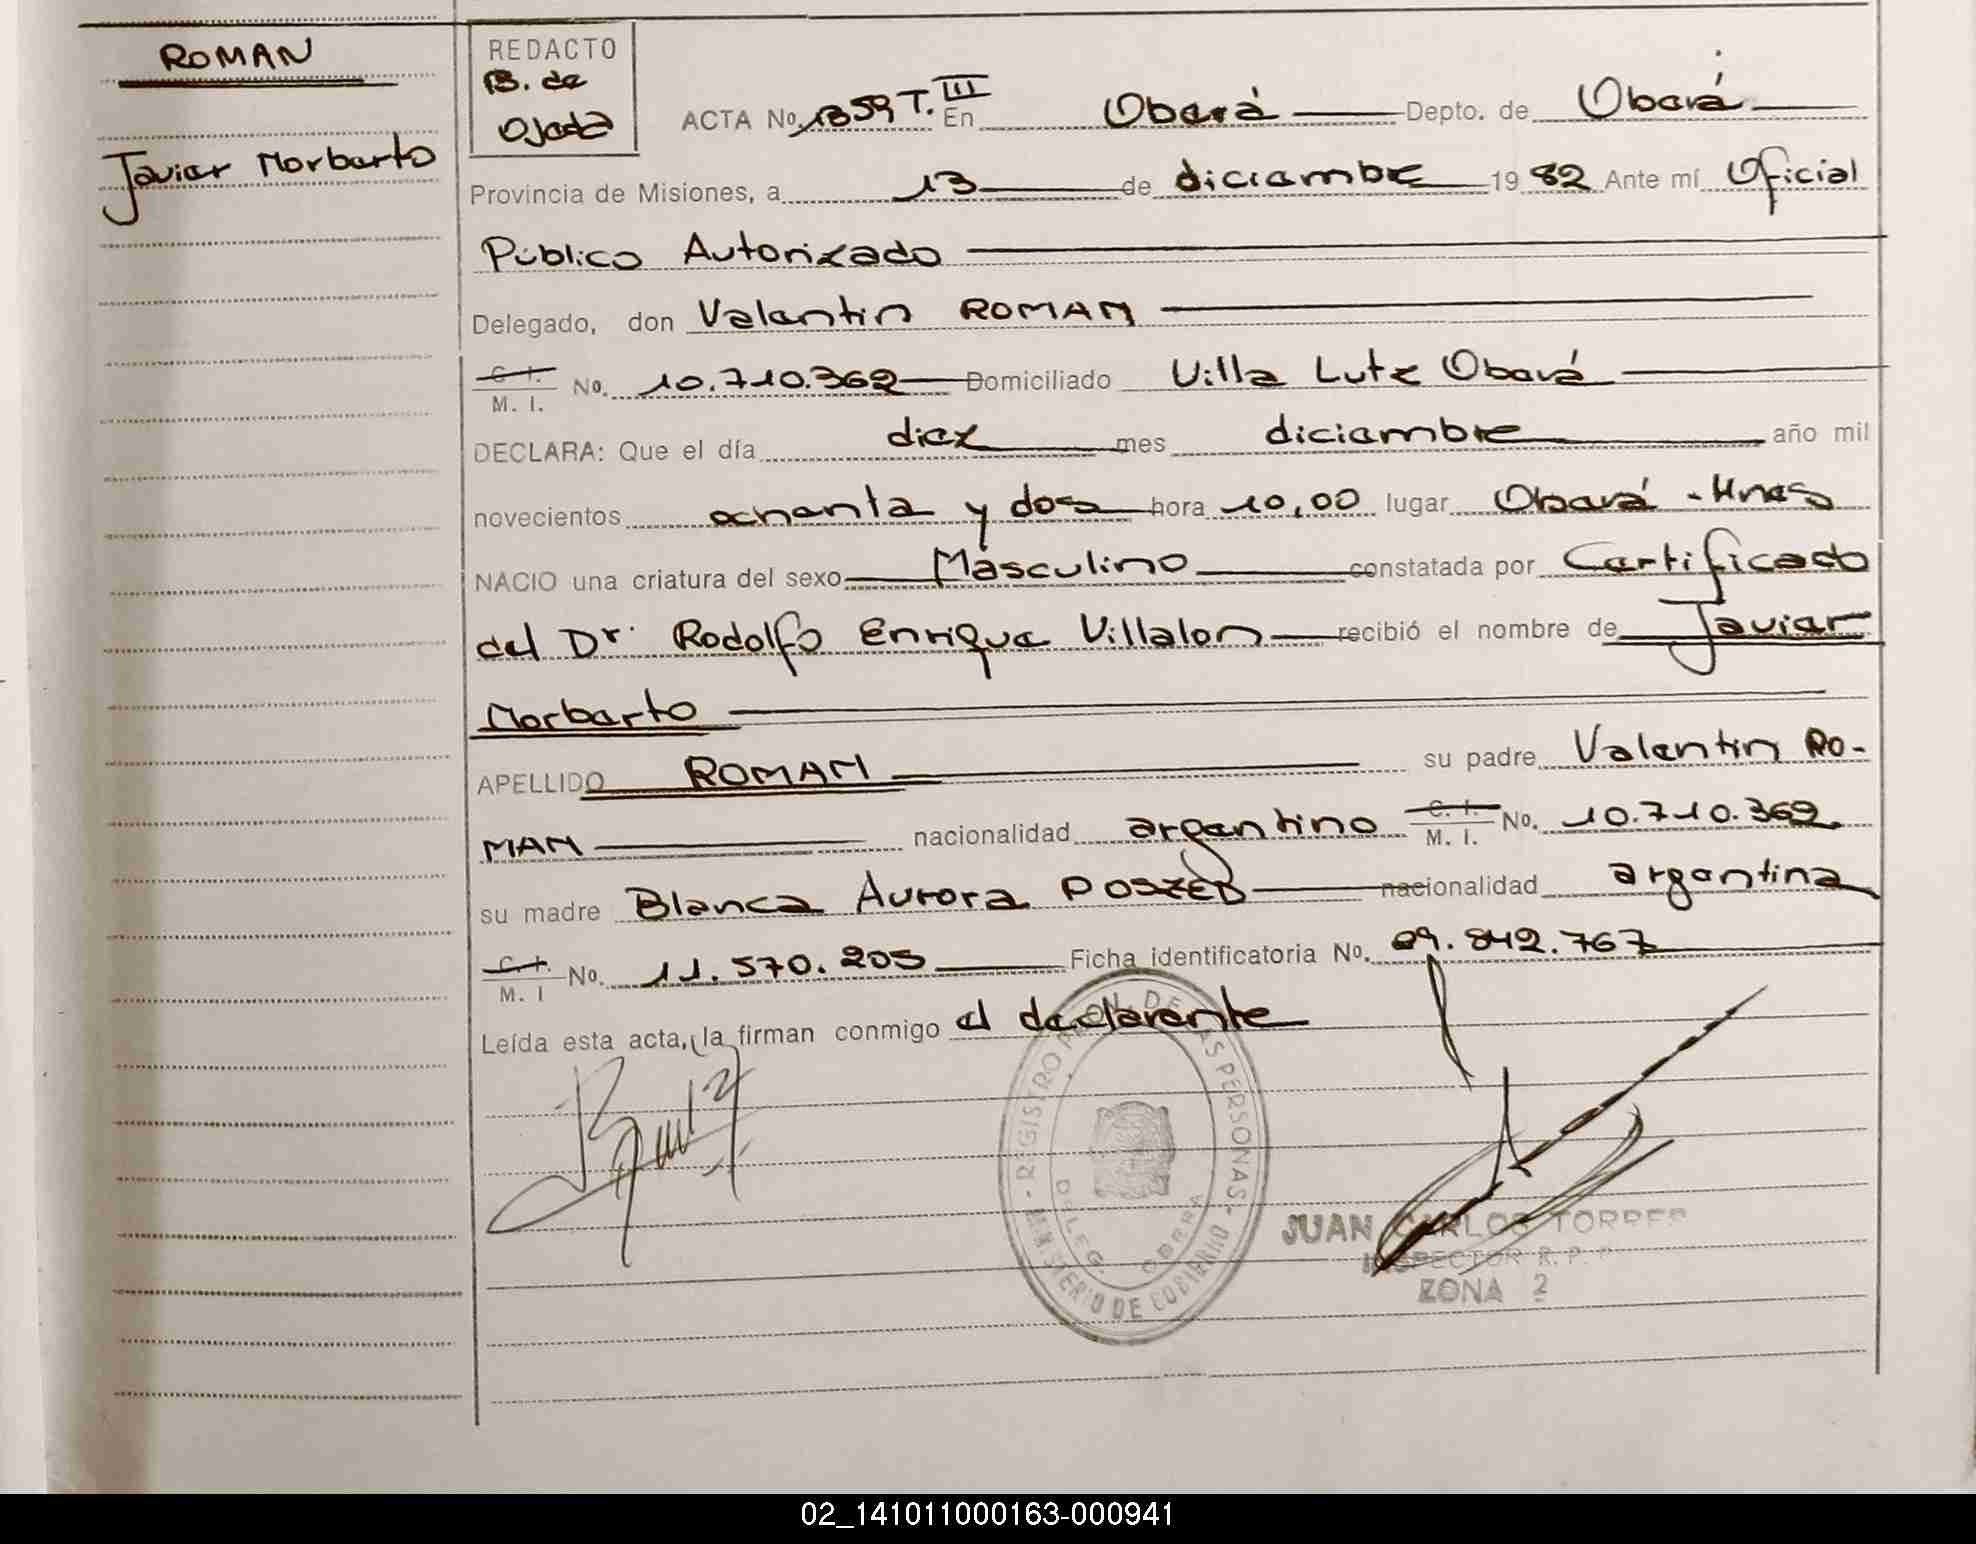 ROMAN
Javier Norberto
REDACTO
B. de
Ojeda
ACTA No. 1359 T. III En Oberá Depto. de Oberá
Provincia de Misiones, a 13 de diciembre 1982 Ante mí Oficial
Público Autorizado
Delegado, don Valentin ROMAN
C. I. M. I. No. 10.710.362 Domiciliado Villa Lutz Oberá
DECLARA: Que el día diez mes diciembre año mil
novecientos ochenta y dos hora 10,00 lugar Oberá - Mnes
NACIO una criatura del sexo Masculino constatada por Certificado
del Dr. Rodolfo Enrique Villalon recibió el nombre de Javier
Norberto
APELLIDO ROMAN su padre Valentin RO-
MAN nacionalidad argentino C. I. M. I. No. 10.710.362
su madre Blanca Aurora POSZED nacionalidad argentina
C. I. M. I No. 11.570.205 Ficha identificatoria No. 29.842.767
Leída esta acta, la firman conmigo el declarante
REGISTRO DE LAS PERSONAS - MINISTERIO DE GOBIERNO
DELEG. OBERA
JUAN CARLOS TORRES
INSPECTOR R. P.
ZONA 2
02_141011000163-000941